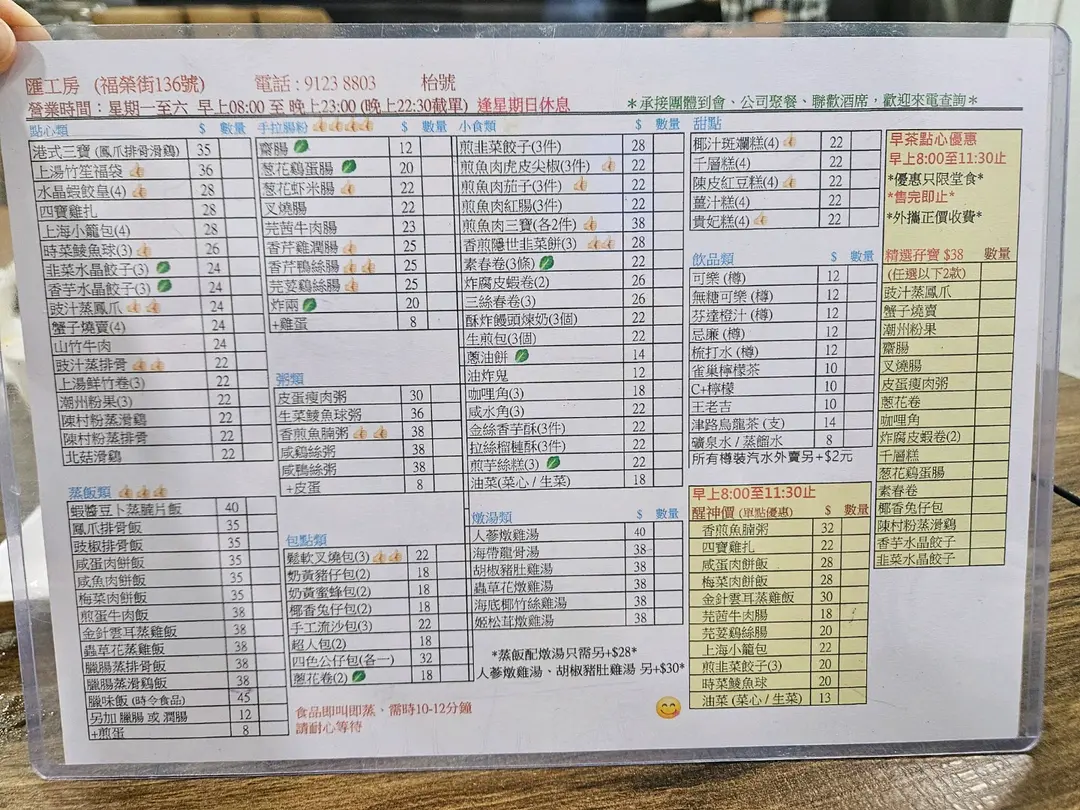 匯工房 (福榮街136號) 電話 : 9123 8803 枱號
營業時間 : 星期一至六 早上08:00 至 晚上23:00 (晚上22:30截單) 逢星期日休息
*承接團體到會、公司聚餐、聯歡酒席，歡迎來電查詢*
點心類 $ 數量
港式三寶 (鳳爪排骨滑鷄) 35
上湯竹笙福袋 36
水晶蝦餃皇(4) 28
四寶雞扎 28
上海小籠包(4) 28
時菜鯪魚球(3) 26
韭菜水晶餃子(3) 24
香芋水晶餃子(3) 24
豉汁蒸鳳爪 24
蟹子燒賣(4) 24
山竹牛肉 24
豉汁蒸排骨 22
上湯鮮竹卷(3) 22
潮州粉果(3) 22
陳村粉蒸滑鷄 22
陳村粉蒸排骨 22
北菇滑鷄 22
蒸飯類
蝦醬豆卜蒸腩片飯 40
鳳爪排骨飯 35
豉椒排骨飯 35
咸蛋肉餅飯 35
咸魚肉餅飯 35
梅菜肉餅飯 35
煎蛋牛肉飯 38
金針雲耳蒸雞飯 38
蟲草花蒸雞飯 38
臘腸蒸排骨飯 38
臘腸蒸滑鷄飯 38
臘味飯 (時令食品) 45
另加 臘腸 或 潤腸 12
+煎蛋 8
手拉腸粉 $ 數量
齋腸 12
葱花鷄蛋腸 20
葱花虾米腸 22
叉燒腸 22
芫茜牛肉腸 23
香芹雞潤腸 25
香芹鴨絲腸 25
芫荽鷄絲腸 25
炸兩 20
+雞蛋 8
粥類
皮蛋瘦肉粥 30
生菜鯪魚球粥 36
香煎魚腩粥 38
咸鷄絲粥 38
咸鴨絲粥 38
+皮蛋 8
包點類
鬆軟叉燒包(3) 22
奶黃豬仔包(2) 18
奶黃蜜蜂包(2) 18
椰香兔仔包(2) 18
手工流沙包(3) 22
超人包(2) 18
四色公仔包(各一) 32
葱花卷(2) 18
食品即叫即蒸、需時10-12分鐘
請耐心等待
小食類 $ 數量
煎韭菜餃子(3件) 28
煎魚肉虎皮尖椒(3件) 22
煎魚肉茄子(3件) 22
煎魚肉紅腸(3件) 22
煎魚肉三寶(各2件) 38
香煎隱世韭菜餅(3) 28
素春卷(3條) 22
炸腐皮蝦卷(2) 26
三絲春卷(3) 26
酥炸饅頭煉奶(3個) 22
生煎包(3個) 22
蔥油餅 14
油炸鬼 12
咖哩角(3) 18
咸水角(3) 22
金絲香芋酥(3件) 22
拉絲榴槤酥(3件) 22
煎芋絲糕(3) 22
油菜(菜心 / 生菜) 18
燉湯類 $ 數量
人蔘燉雞湯 40
海帶龍骨湯 38
胡椒豬肚雞湯 38
蟲草花燉雞湯 38
海底椰竹絲雞湯 38
姬松茸燉雞湯 38
*蒸飯配燉湯只需另+$28*
人蔘燉雞湯、胡椒豬肚雞湯 另+$30*
甜點
椰汁斑斕糕(4) 22
千層糕(4) 22
陳皮紅豆糕(4) 22
薑汁糕(4) 22
貴妃糕(4) 22
飲品類 $ 數量
可樂 (樽) 12
無糖可樂 (樽) 12
芬達橙汁 (樽) 12
忌廉 (樽) 12
梳打水 (樽) 12
雀巢檸檬茶 10
C+檸檬 10
王老吉 10
津路烏龍茶 (支) 14
礦泉水 / 蒸餾水 8
所有樽裝汽水外賣另+$2元
早上8:00至11:30止
醒神價 (單點優惠) $ 數量
香煎魚腩粥 32
四寶雞扎 22
咸蛋肉餅飯 28
梅菜肉餅飯 28
金針雲耳蒸雞飯 30
芫茜牛肉腸 18
芫荽鷄絲腸 20
上海小籠包 22
煎韭菜餃子(3) 20
時菜鯪魚球 20
油菜 (菜心 / 生菜) 13
早茶點心優惠
早上8:00至11:30止
*優惠只限堂食*
*售完即止*
*外攜正價收費*
精選孖寶 $38 數量
(任選以下2款)
豉汁蒸鳳爪
蟹子燒賣
潮州粉果
齋腸
叉燒腸
皮蛋瘦肉粥
葱花卷
咖哩角
炸腐皮蝦卷(2)
千層糕
葱花鷄蛋腸
素春卷
椰香兔仔包
陳村粉蒸滑鷄
香芋水晶餃子
韭菜水晶餃子